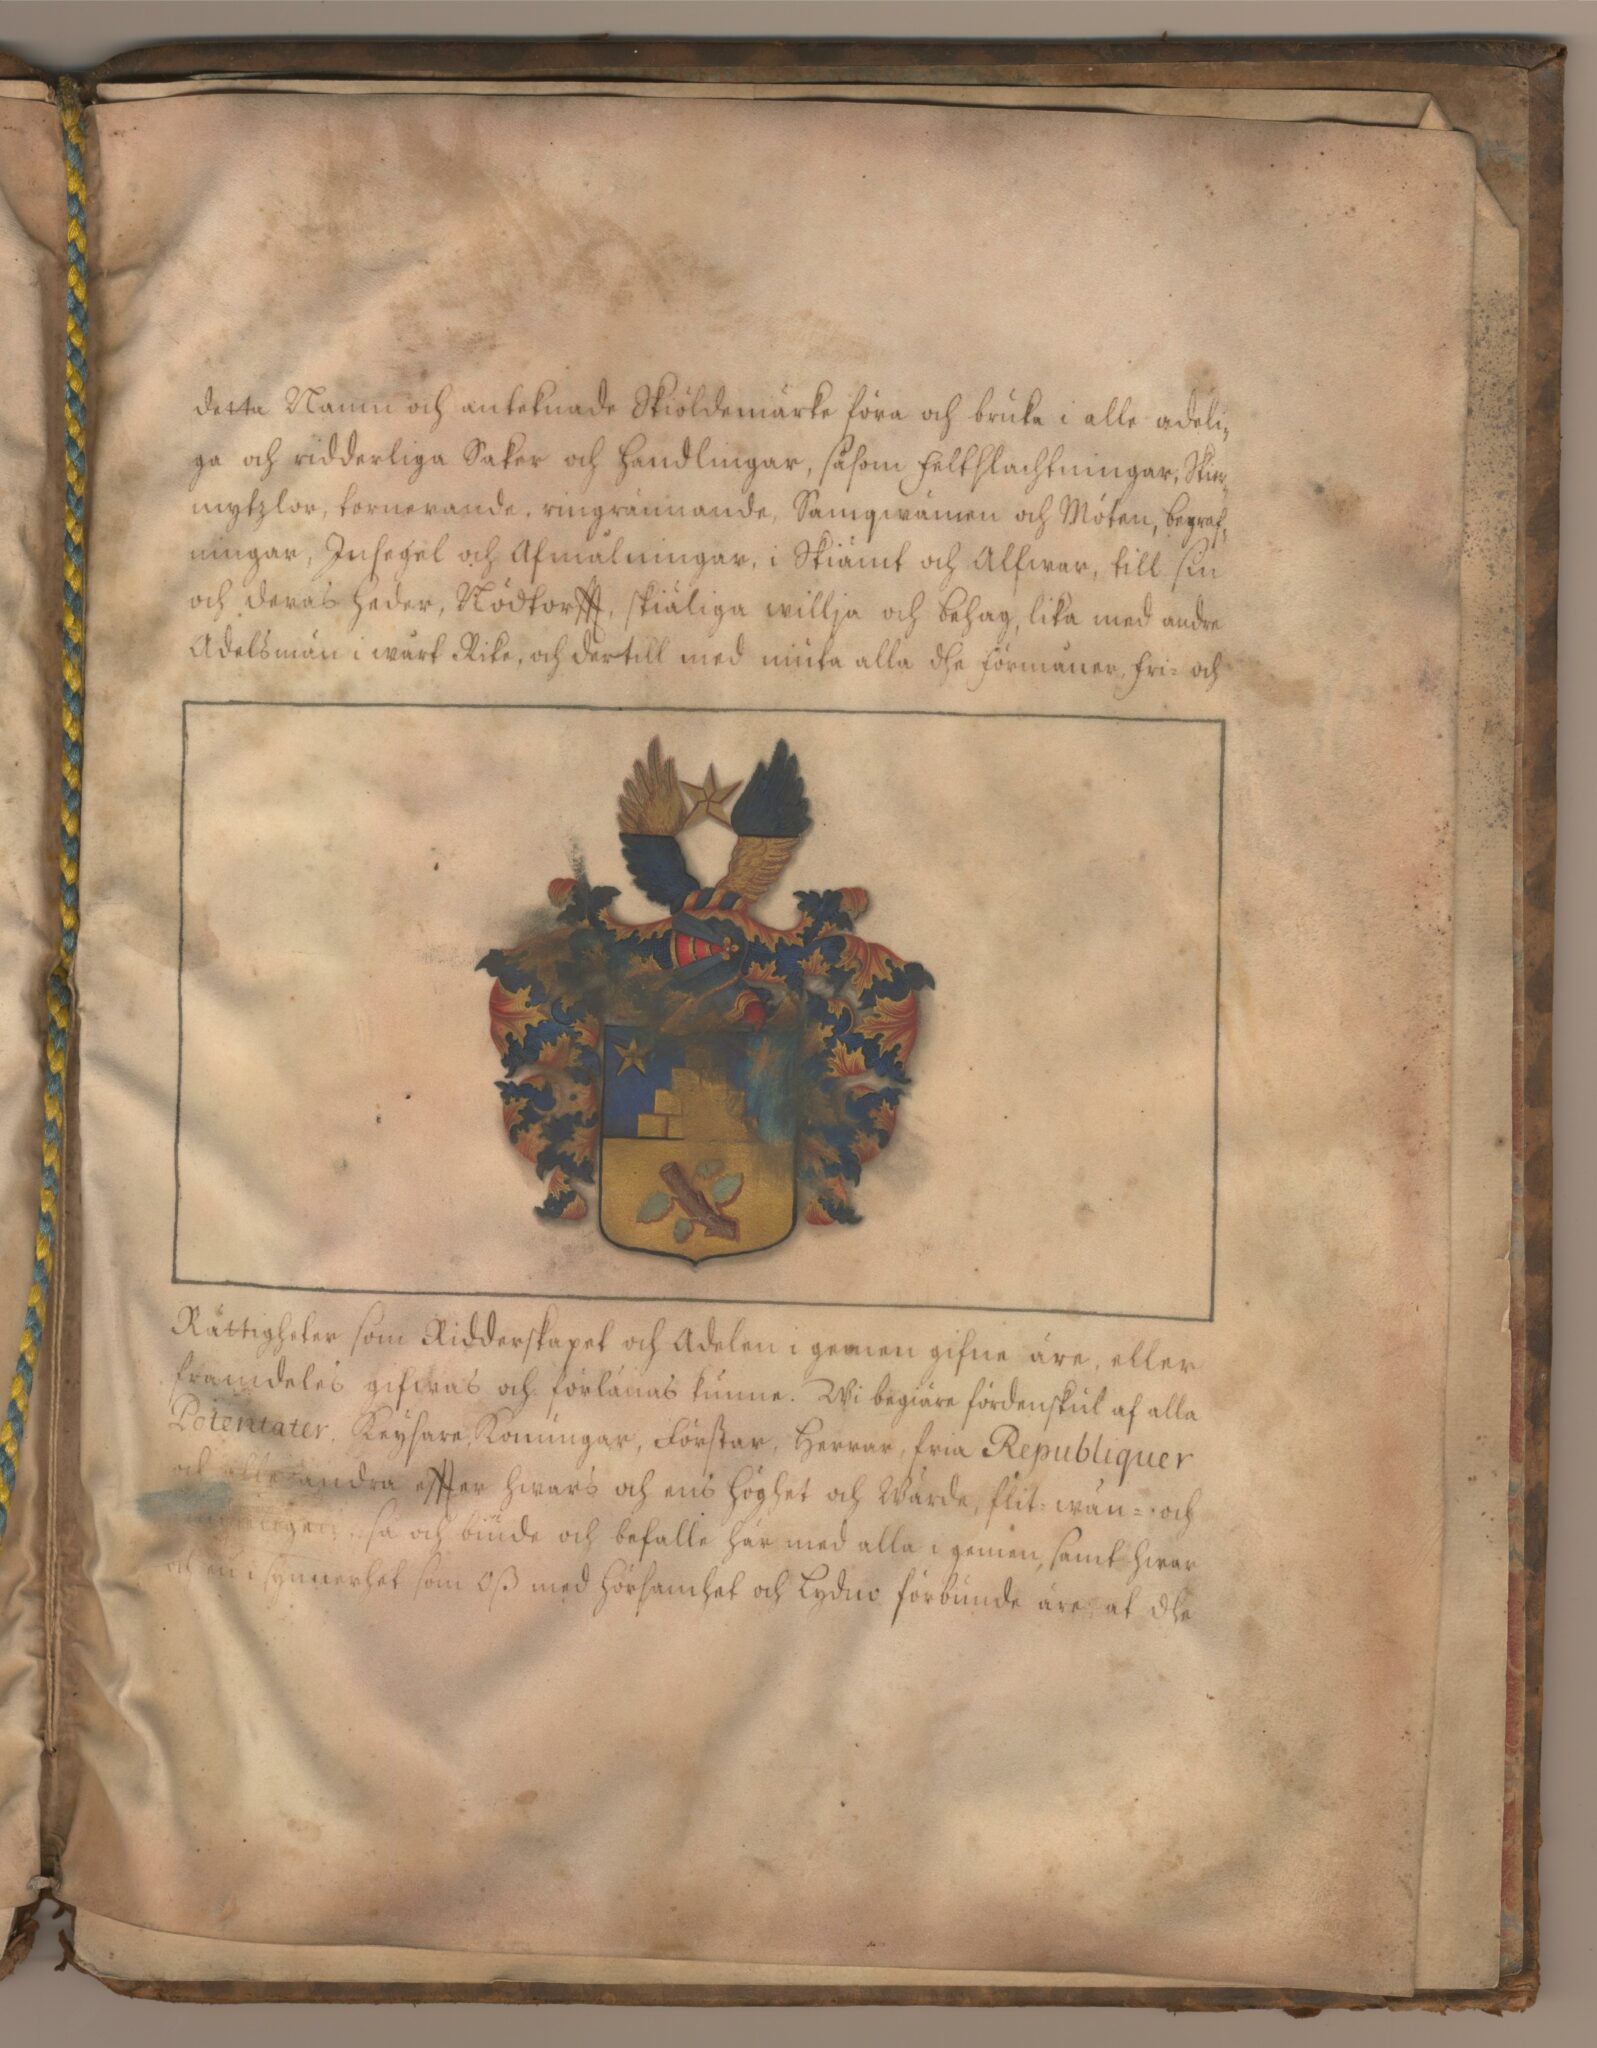 detta Namn och anteknade Skiöldemärke föra och bruka i alle adeli-
ga och ridderliga Saker och Handlingar, såsom Feltslachtningar, Skier-
mytzlor, tornerande, ringrännande, Samqwämen och Möten, begraf-
ningar, Insegel och Afmålningar, i Skiämt och Alfwar, till sin
och deras heder, Nödtorfft, skiäliga willja och behag, lika med andre
Adelsmän i wårt Rike, och dertill med niuta alla dhe förmåner, fri- och
Rättigheter som Ridderskapet och Adelen i gemen gifne äre, eller
framdeles gifwas och förlänas kunne. Wi begiäre fördenskul af alla
Potentater, Keysare, Konungar, Förstar, Herrar, fria Republiquer
och alle andra effter hwars och ens höghet och Wärde, flit- wän- och
så och biude och befalle här med alla i gemen, samt hwar
och en i synnerhet som Oß med hörsamhet och Lydno förbunde äre, at dhe